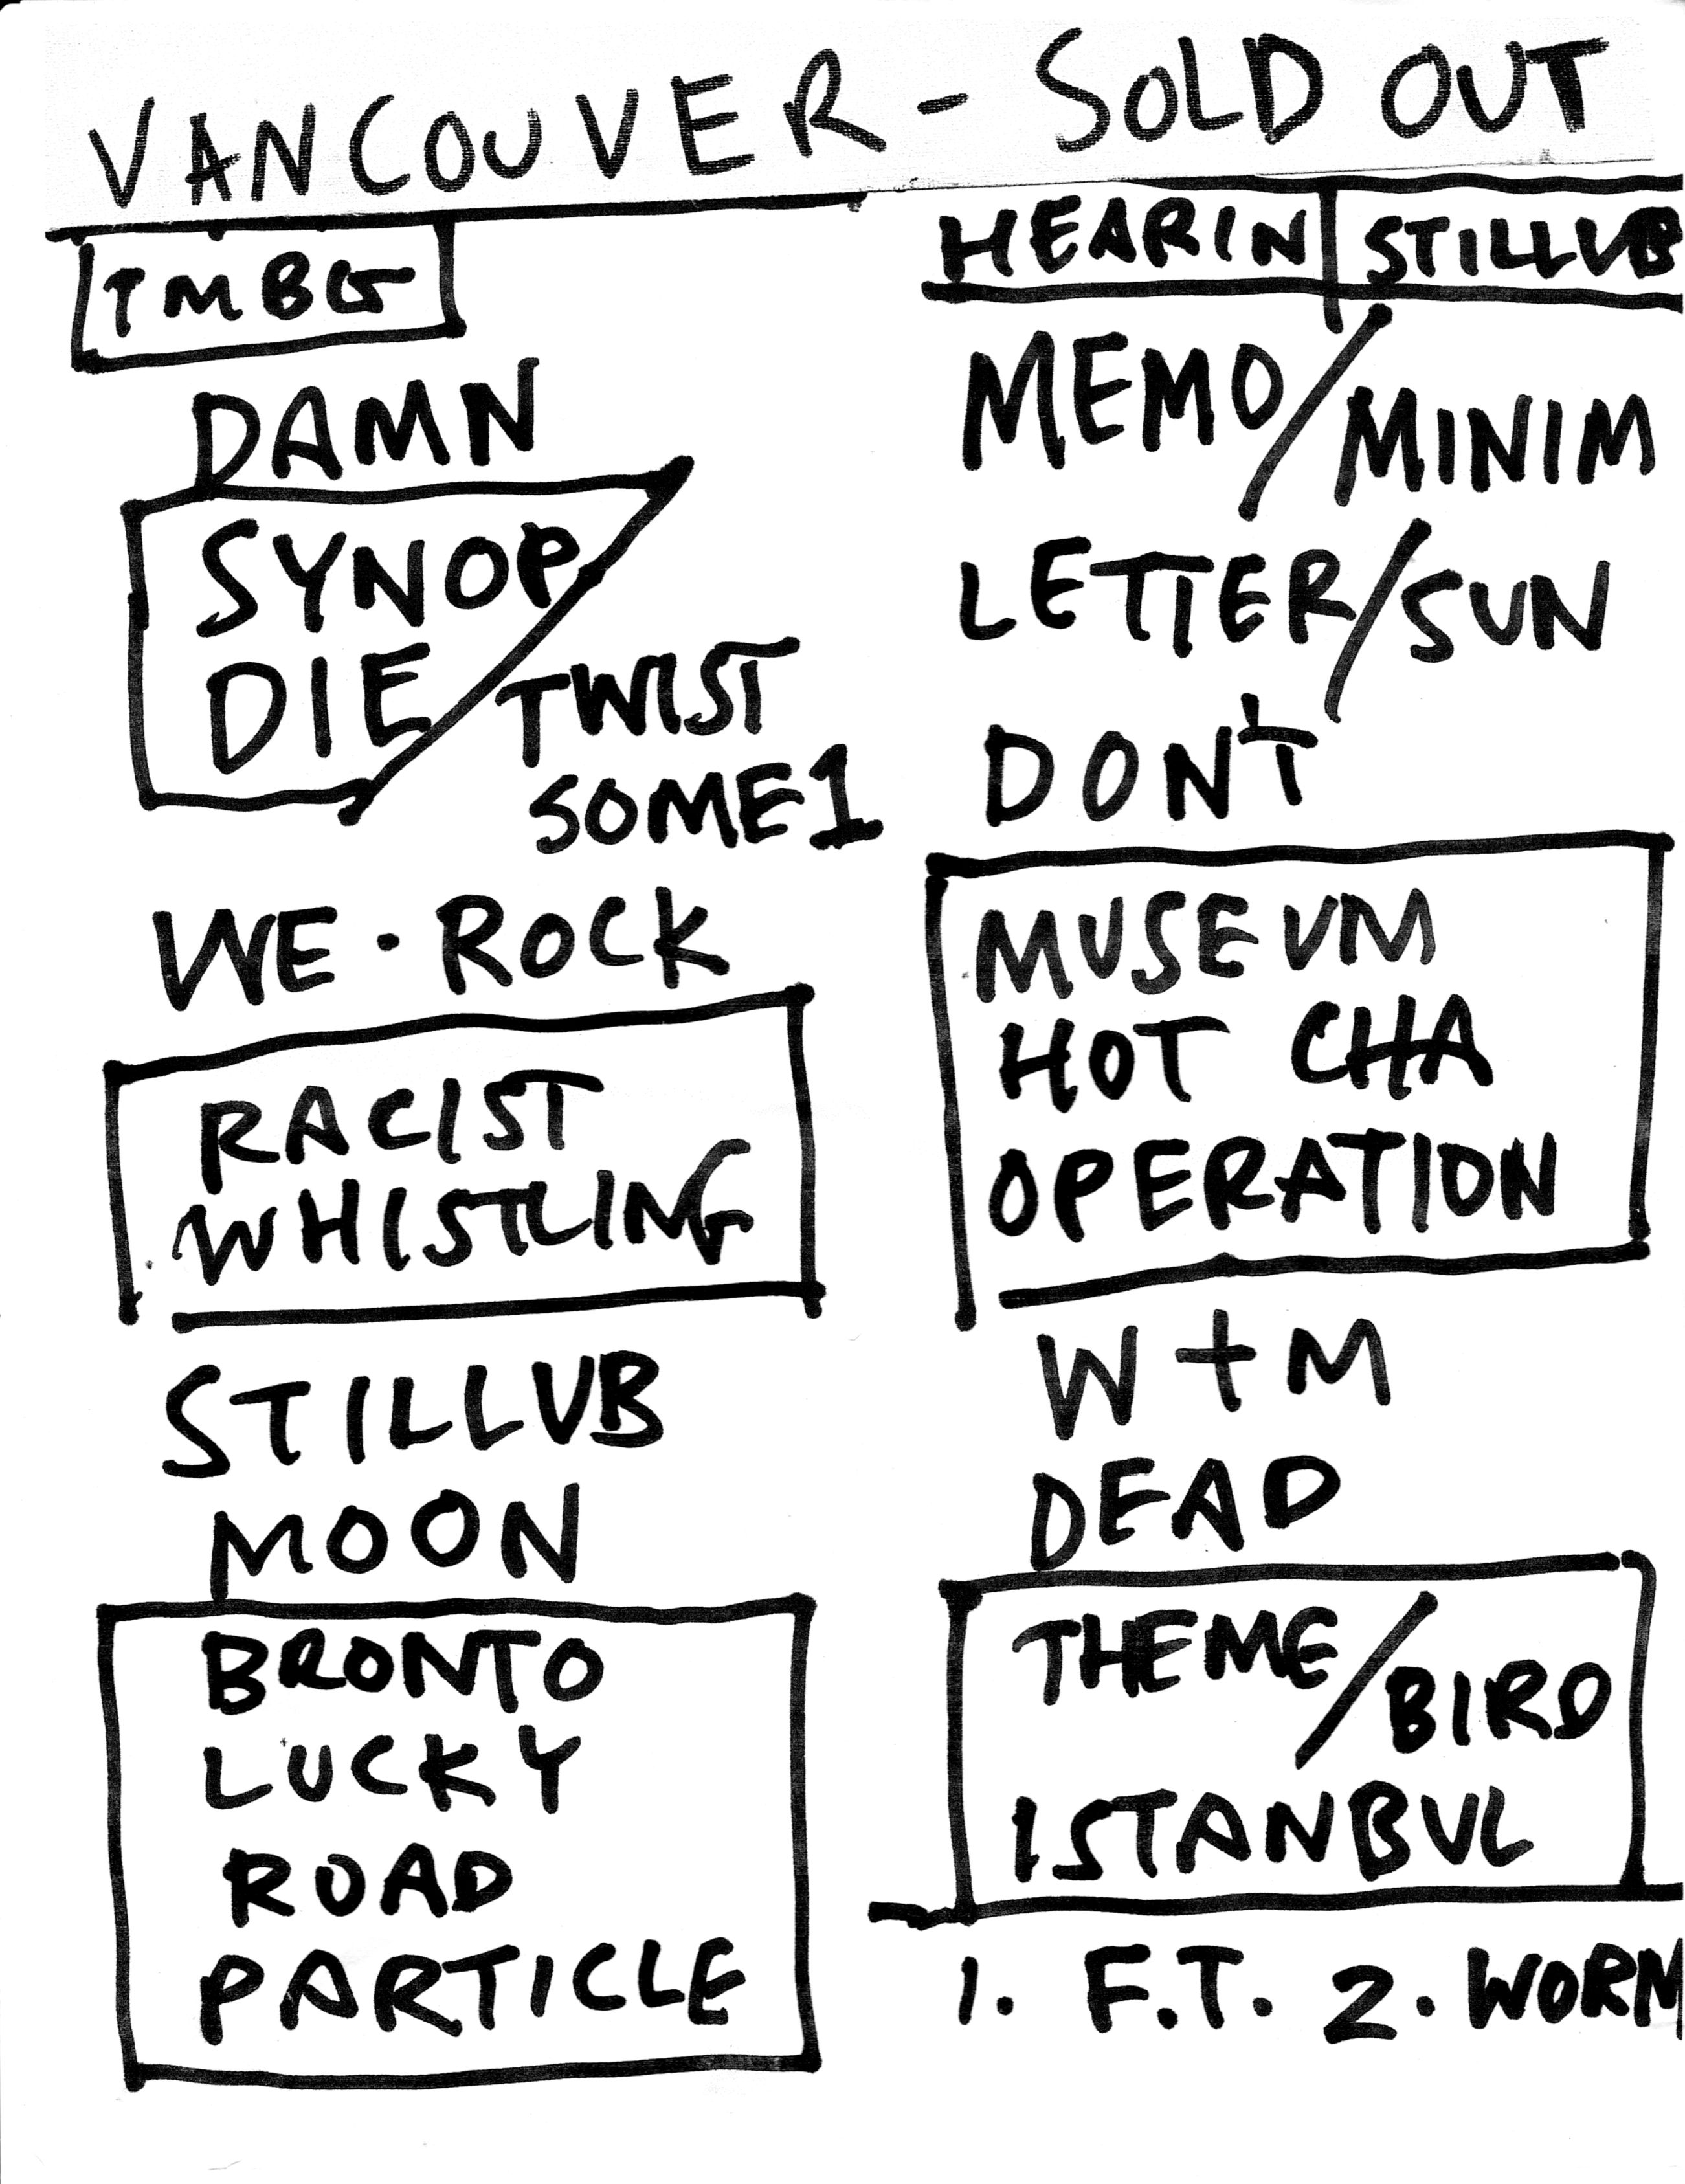 VANCOUVER - SOLD OUT
TMBG
DAMN
SYNOP
DIE / TWIST
SOME1
WE · ROCK
RACIST
WHISTLING
STILLUB
MOON
BRONTO
LUCKY
ROAD
PARTICLE
HEARIN | STILLUB
MEMO / MINIM
LETTER / SUN
DON'T
MUSEUM
HOT CHA
OPERATION
W + M
DEAD
THEME / BIRD
ISTANBUL
1. F.T. 2. WORM